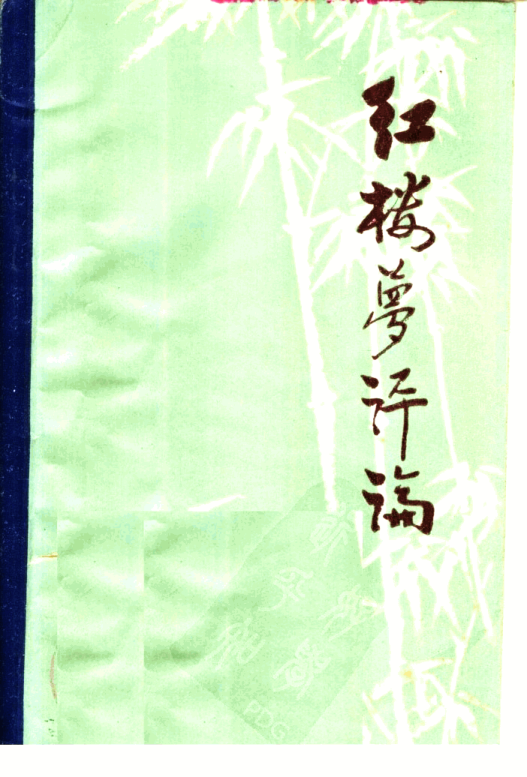 红楼夢评論
PDG